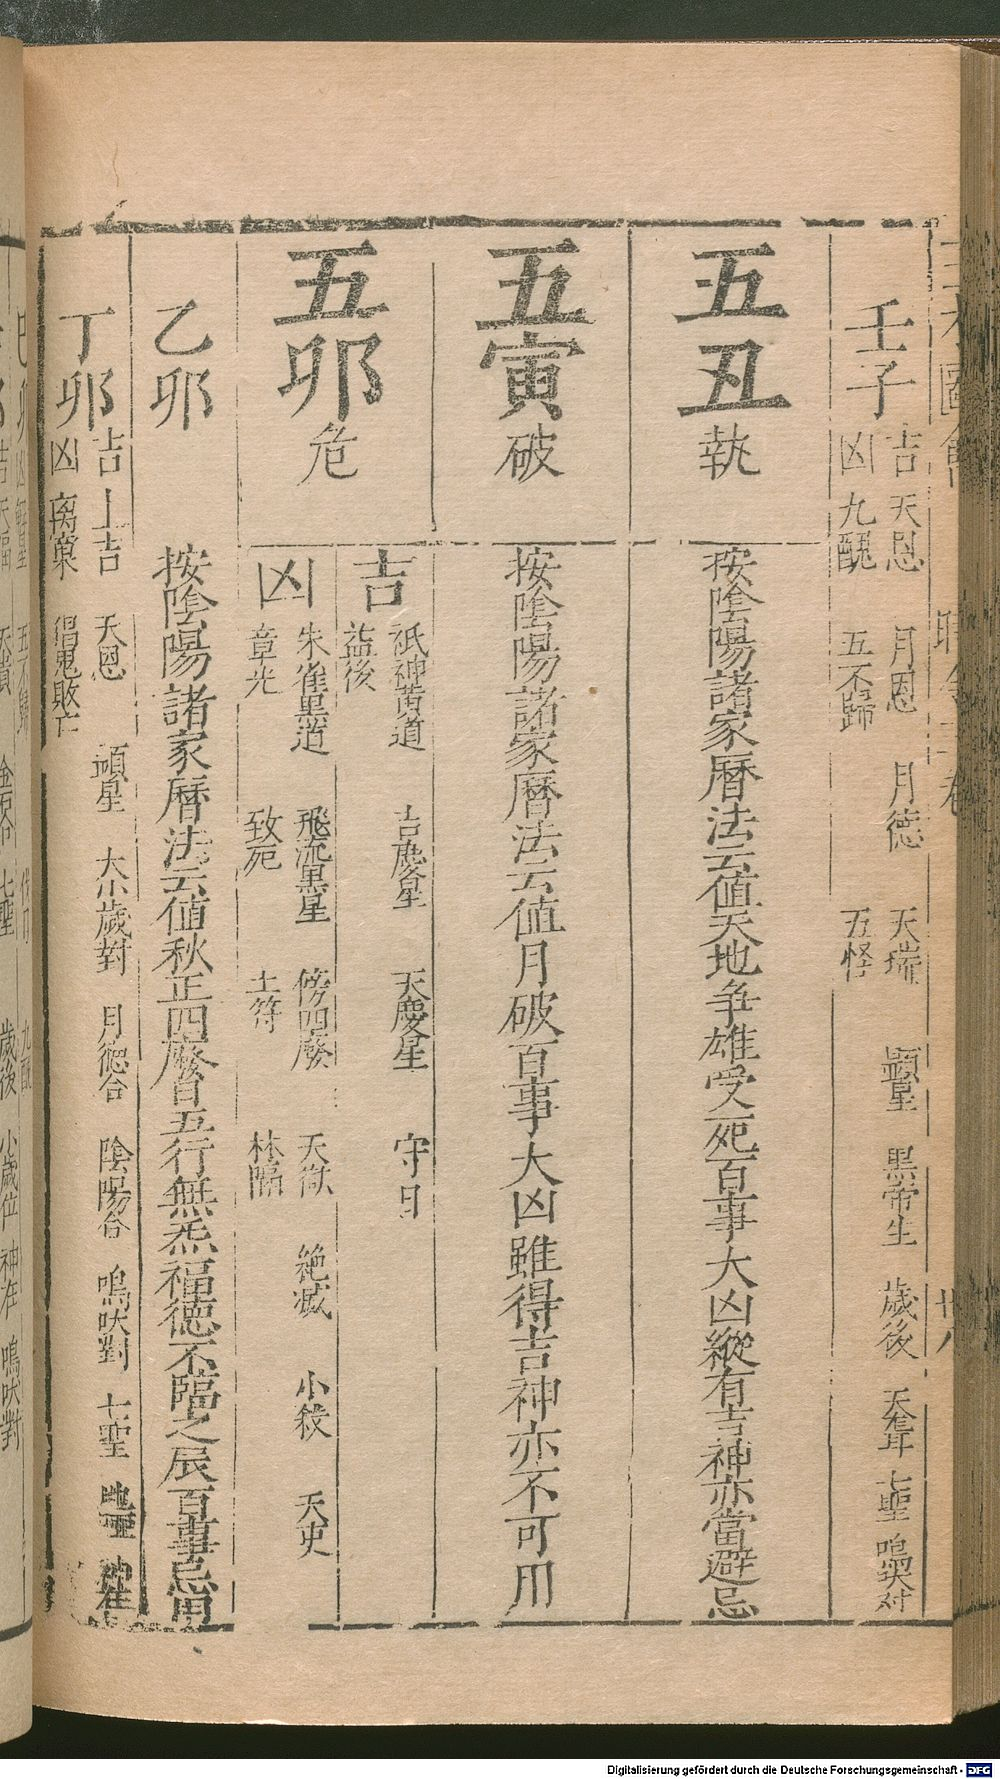 壬子
吉 天恩 月恩 月德 天瑞 顯星 黑帝生 歲後 天聾 七聖 鳴吠对
凶 九醜 五不歸 五怪
五丑執
按陰陽諸家曆法云値天地爭雄受死百事大凶縱有吉神亦當避忌
五寅破
按陰陽諸家曆法云值月破百事大凶雖得吉神亦不可用
五卯危
吉 祇神黃道 吉慶星 天慶星 守日
益後
凶 朱雀黑道 飛流黑星 傍四廢 天獄 絶滅 小殺 天吏
章光 致死 土符 林隔
乙卯
按陰陽諸家曆法云值秋正四廢日五行無炁福德不臨之辰百事忌用
丁卯
吉 上吉 天恩 顯星 大小歲對 月德合 陰陽合 鳴吠對 七聖
凶 离窠 倡鬼敗亡
Digitalisierung gefördert durch die Deutsche Forschungsgemeinschaft - DFG